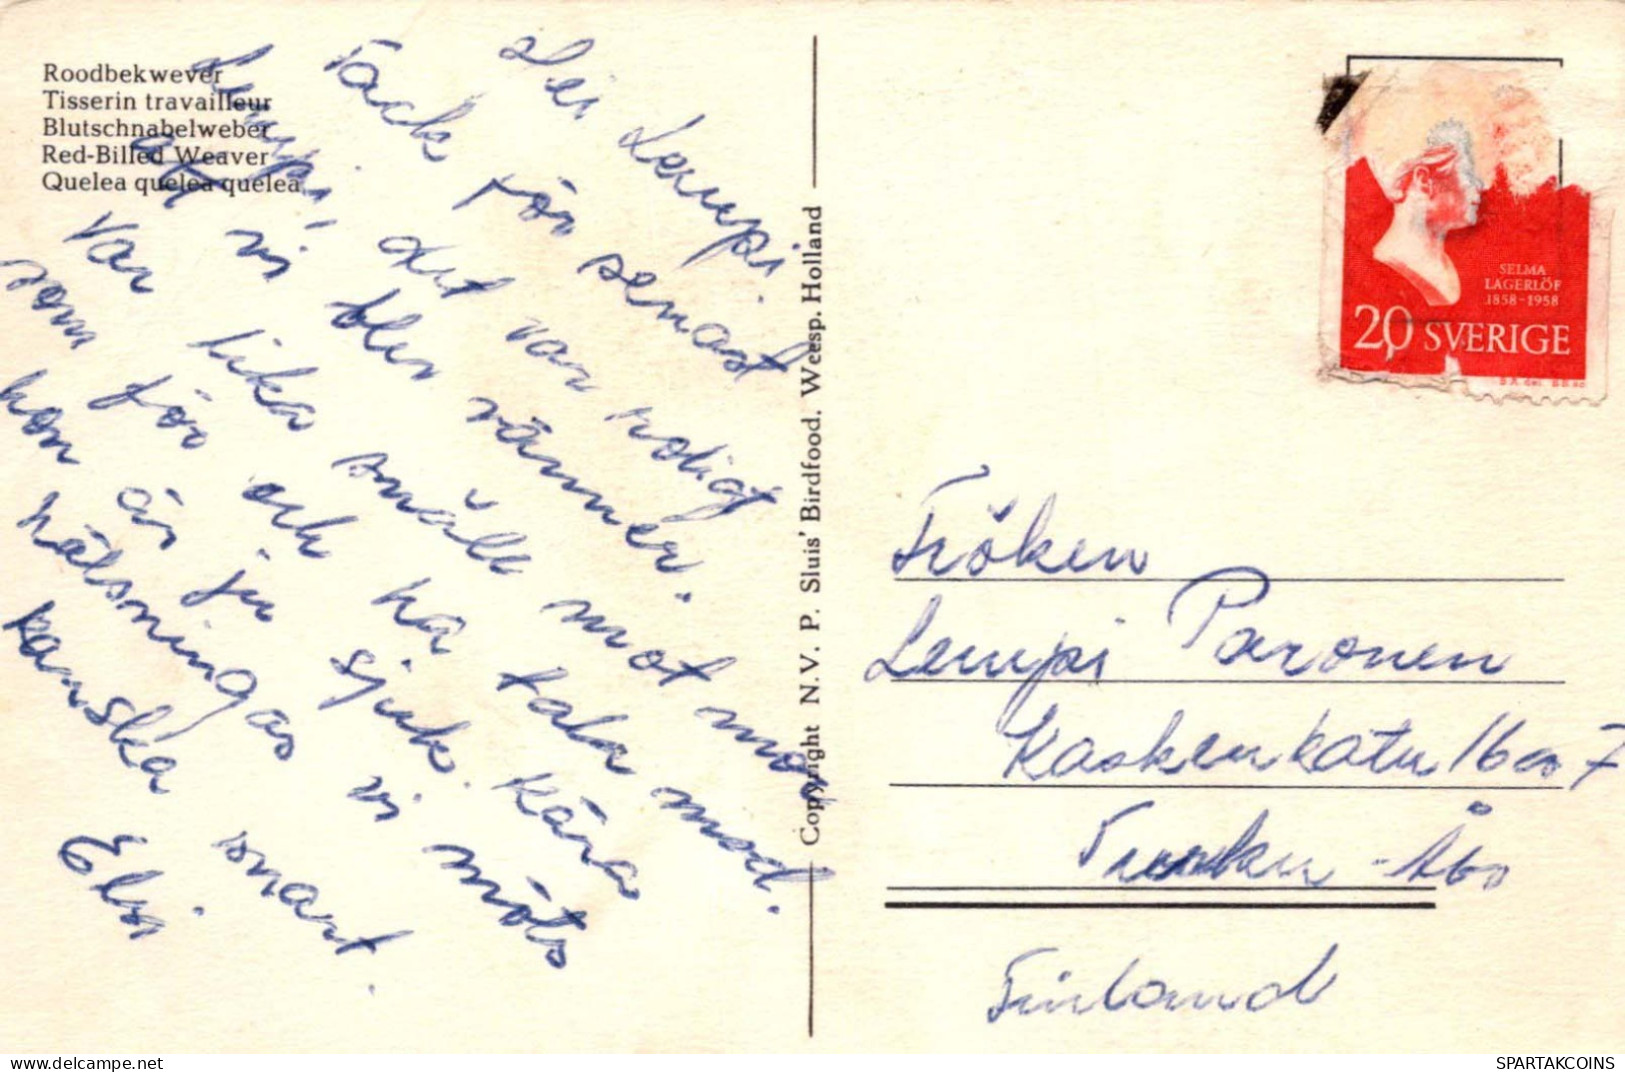 Roodbekwever
Tisserin travailleur
Blutschnabelweber
Red-Billed Weaver
Quelea quelea quelea
Hei Lempi.
Tack för senast
Lempi, det var roligt
att vi blev vänner.
var lika snäll mot mej
som för och ha tala med.
hon är ju sjuk. Kära
hälsningar vi möts
kanska snart.
Elvi.
Copyright N.V. P. Sluis' Birdfood. Weesp. Holland
SELMA
LAGERLÖF
1858-1958
20 SVERIGE
Fröken
Lempi Paronen
Kaskenkatu 16 7
Turku-Åbo
Finland
SPARTAKCOINS